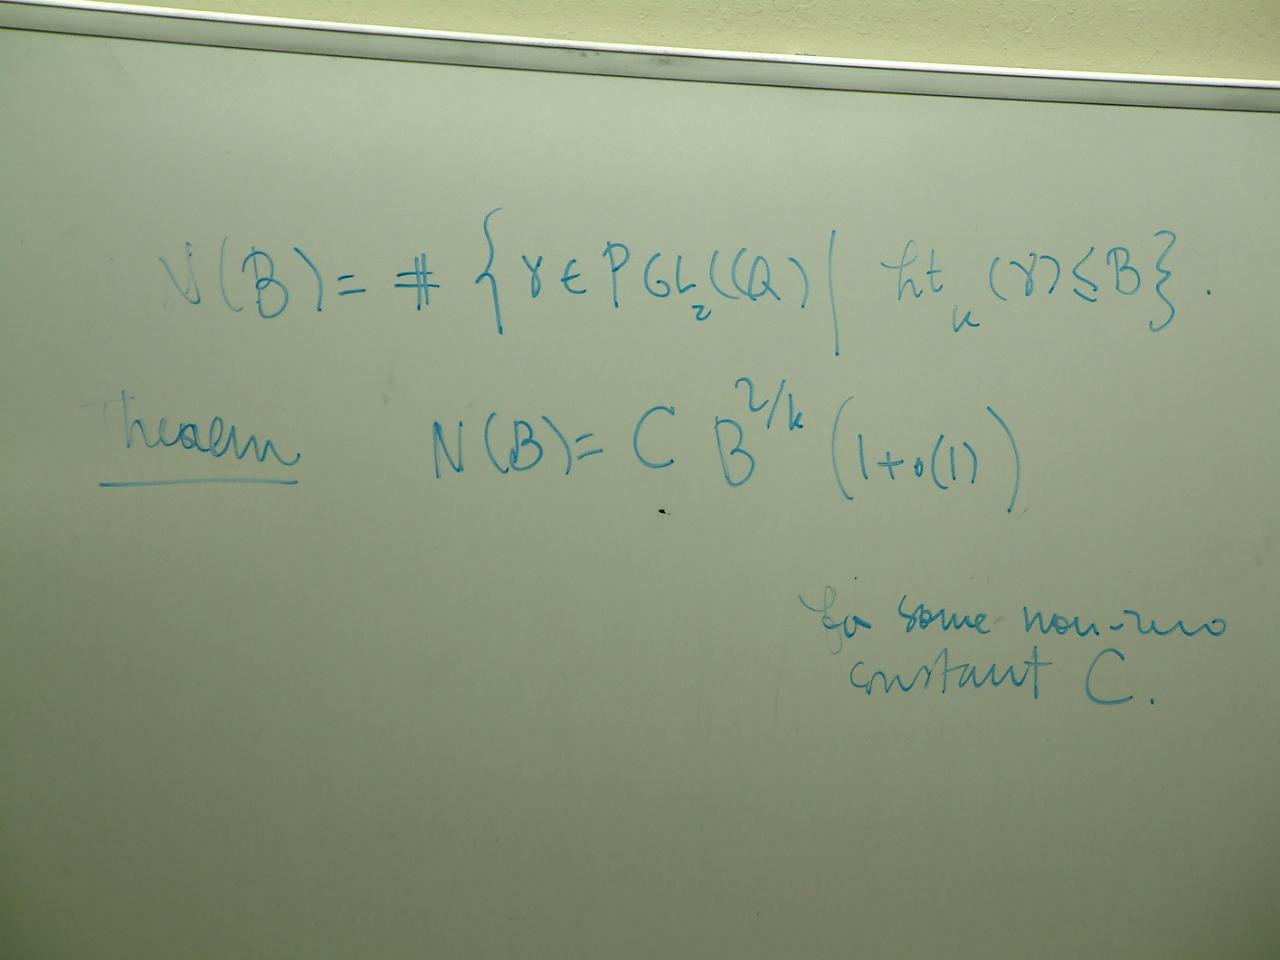 N(B) = # { γ ∈ PGL₂(ℚ) | ht_k (γ) ≤ B }.
Theorem N(B) = C B^{2/k} (1+o(1))
for some non-zero
constant C.